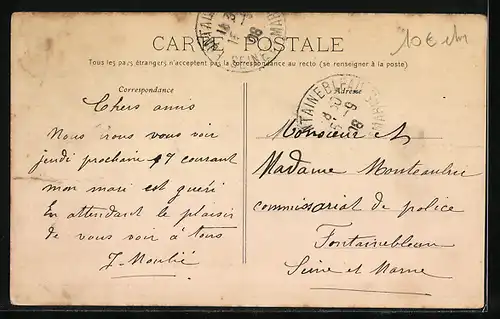 CARTE POSTALE
10€ 
Tous les pays étrangers n'acceptent pas la correspondance au recto (se renseigner à la poste)
Correspondance
Chers amis
Nous irons vous voir
jeudi prochain 17 courant
mon mari est guéri
En attendant le plaisir
de vous voir à tous
J. Moulié
Adresse
FONTAINEBLEAU
Monsieur et
Madame
commissariat de police
Fontainebleau
Seine et Marne